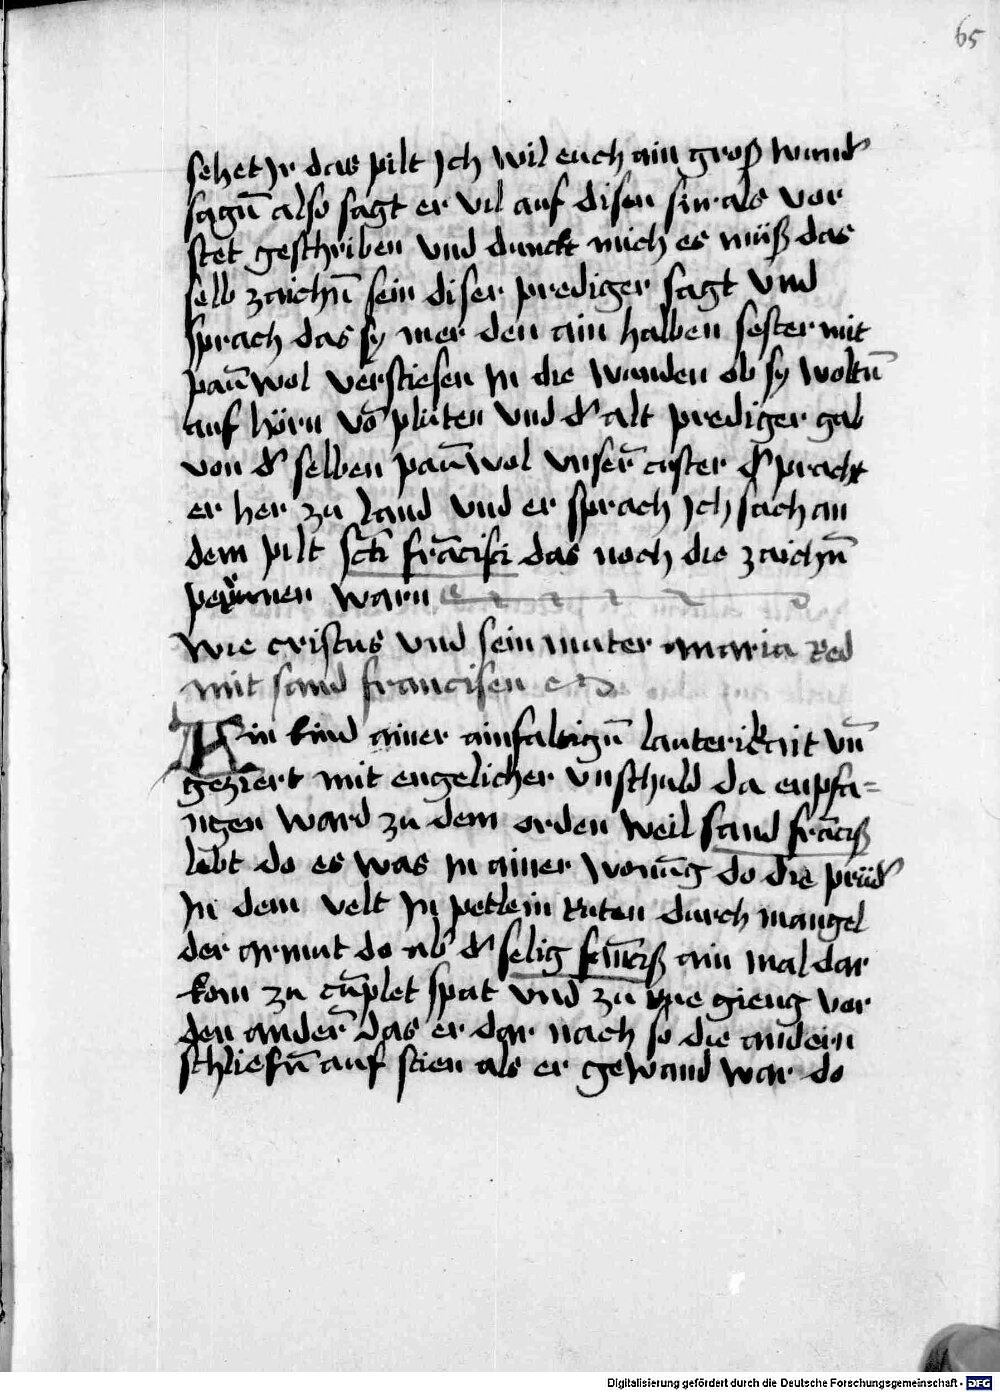 65
sehet Jr das pilt Ich wil euch ain groß wundʼ
sagn̄ also sagt er vil auf disen sin als vor
stet geschriben vnd dunckt mich es müß das
selb zaichn̄ sein diser prediger sagt vnd
sprach das sy mer den ain halben sester mit
paūwol verstiesen in die wunden ob sy woltn̄
auf hörn vō plüten vnd dʼ alt prediger gab
von dʼ selben paūwol vnser̄ custer dʼ pracht
er her zu land vnd er sprach Ich sach an
dem pilt scti frācisci das noch die zaichn̄
warn
wie cristus vnd sein muter maria red
mit sand francisen
Ain kind ainer ainfaltign̄ lauterikait vn̄
geziert mit engelicher vnschuld da enpfa=
ngen ward zu dem orden weil sand frāciß
lebt do es was in ainer wonūg do die prüdʼ
in dem velt in petlein ruten durch mangel
der armut do abʼ dʼ selig frāciß ain mal dar
kom zu cūplet spat vnd zu rue gieng vor
den ander̄ das er dar nach so die andern
schliefn̄ auf stien als er gewand war do
Digitalisierung gefördert durch die Deutsche Forschungsgemeinschaft - DFG